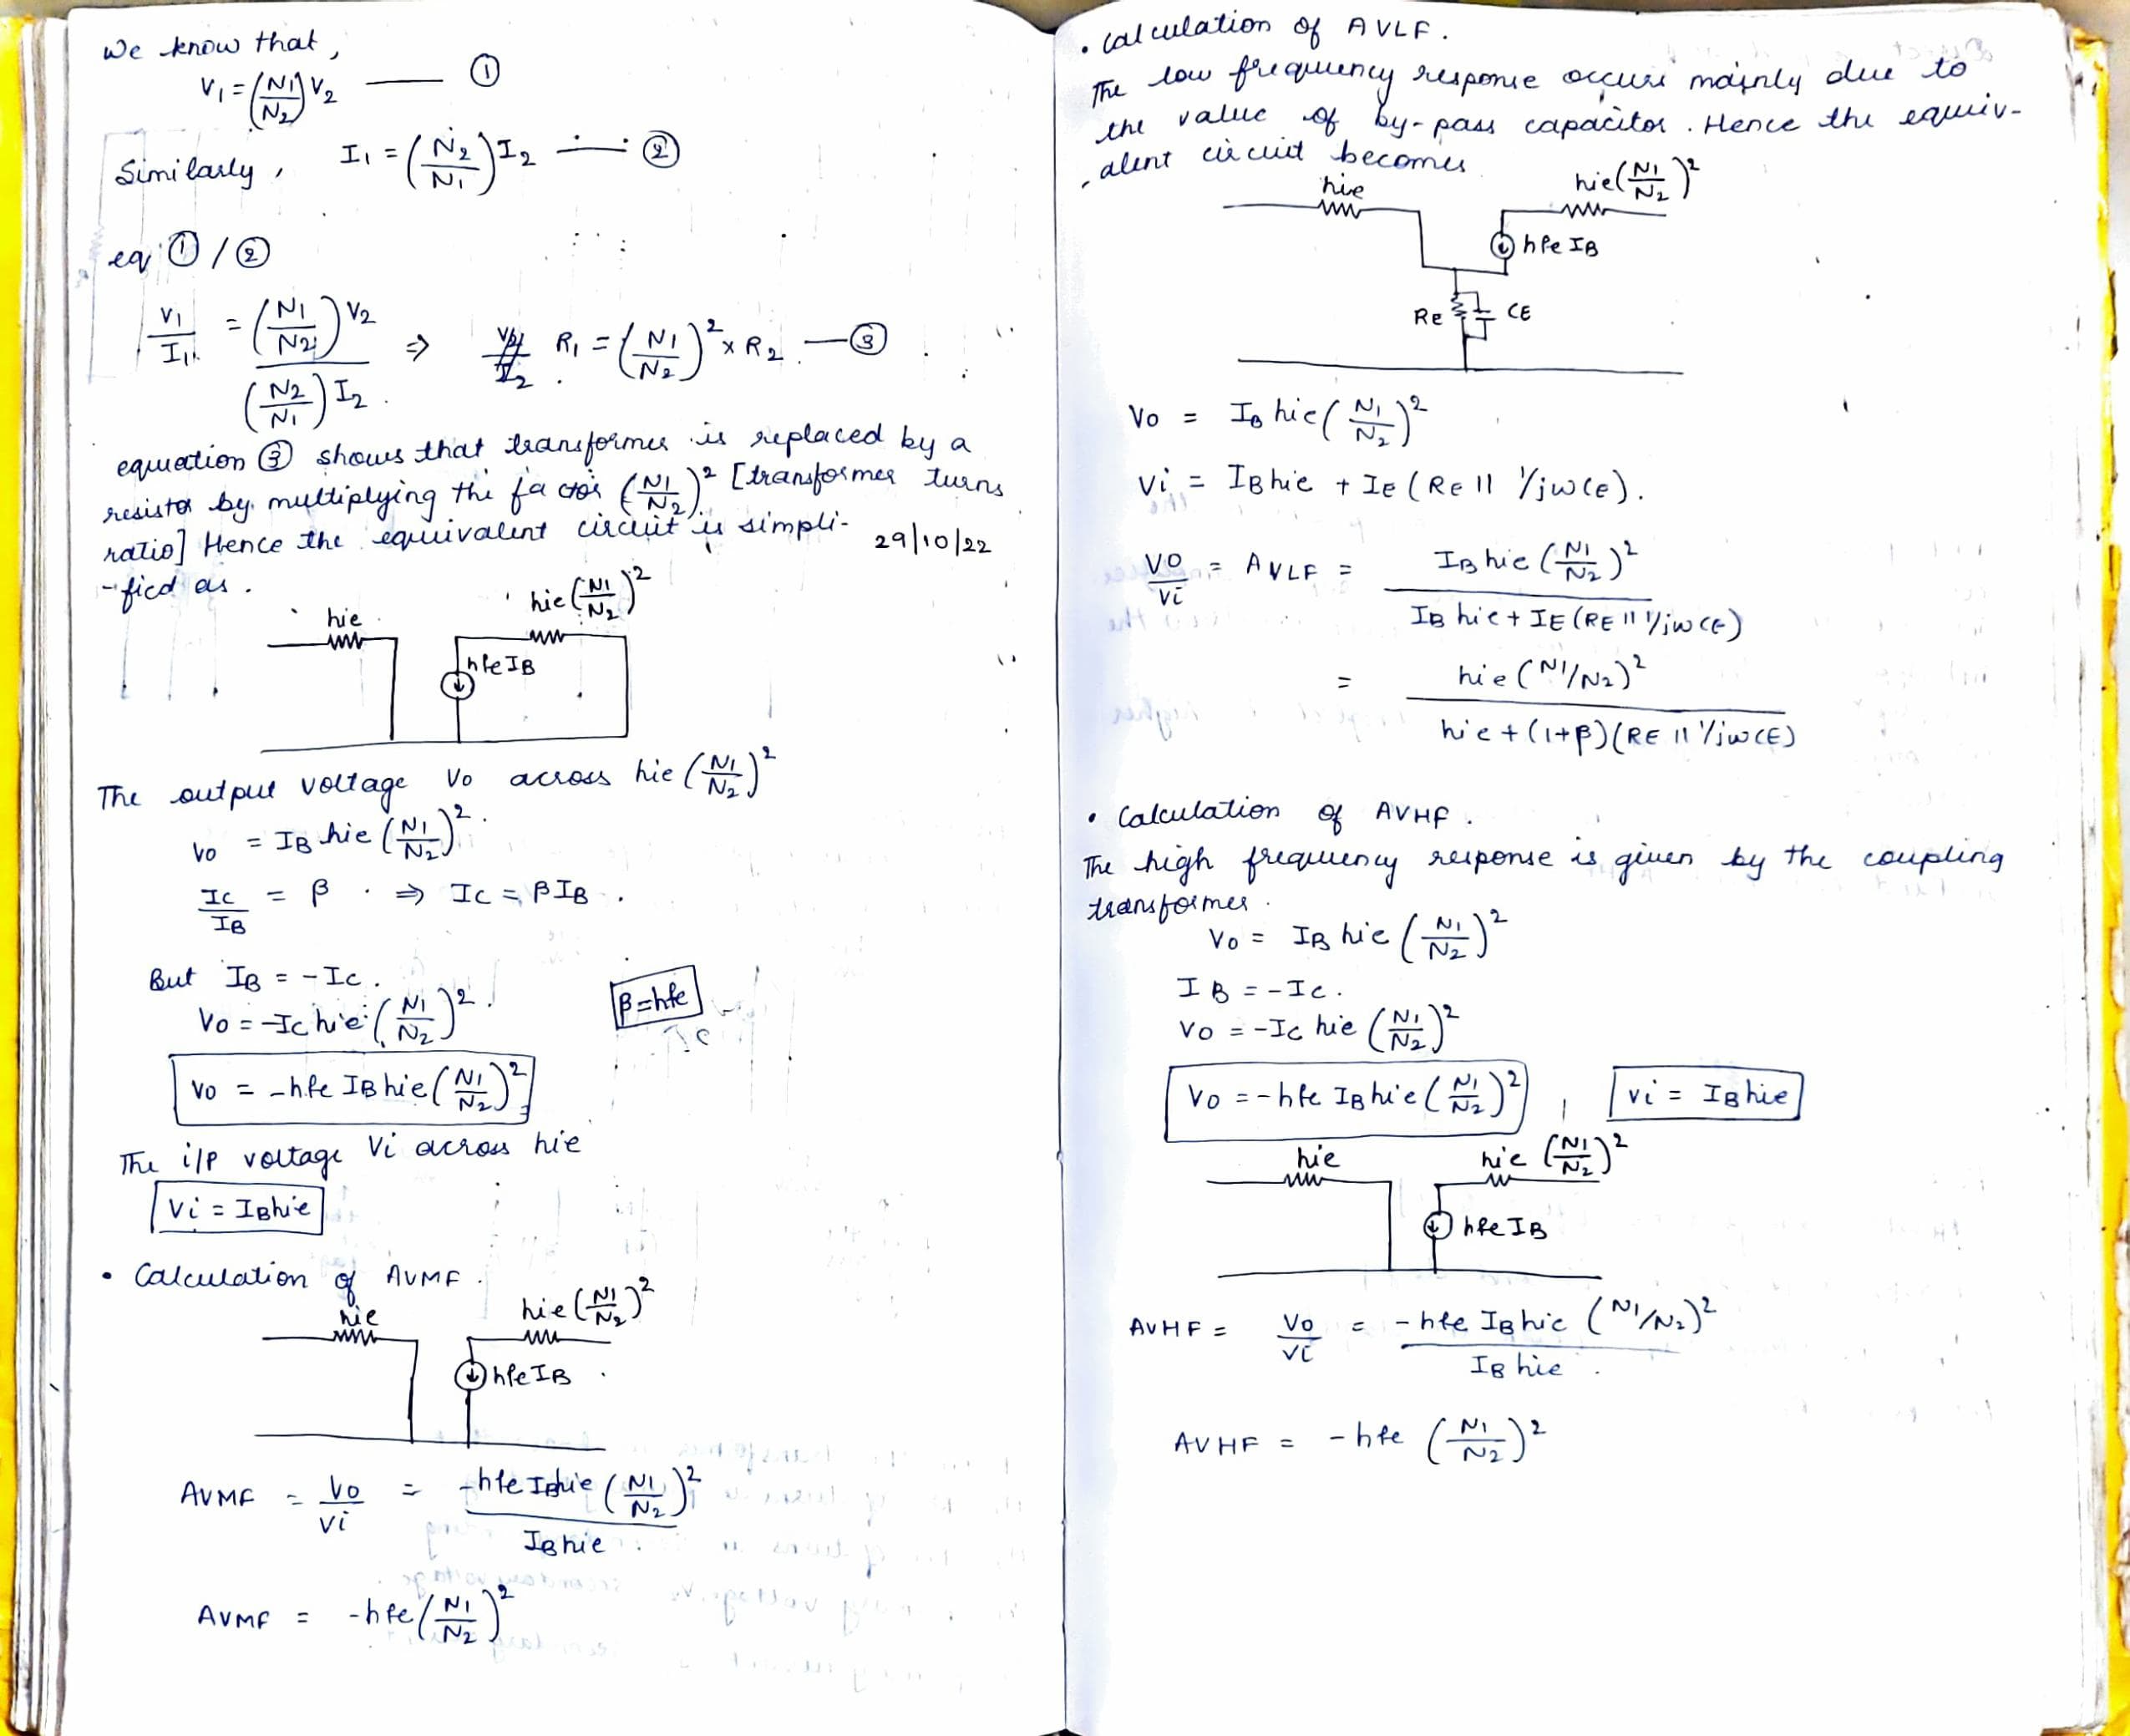 We know that,
V1 = (N1/N2) V2 —— ①
Similarly, I1 = (N2/N1) I2 —— ②
eq ① / ②
V1/I1 = (N1/N2) V2 / (N2/N1) I2 ⇒ R1 = (N1/N2)² x R2 — ③
equation ③ shows that transformer is replaced by a
resistor by multiplying the factor (N1/N2)² [transformer turns
ratio] Hence the equivalent circuit is simpli-
29/10/22
-fied as.
hie
hie (N1/N2)²
hfe IB
The output voltage Vo across hie (N1/N2)²
Vo = IB hie (N1/N2)².
IC/IB = β. ⇒ IC = βIB.
But IB = -IC.
Vo = -IC hie (N1/N2)².
β = hfe
Vo = -hfe IB hie (N1/N2)²
The i/p voltage Vi across hie
Vi = IBhie
• Calculation of AVMF.
hie
hie (N1/N2)²
hfe IB
AVMF = Vo/Vi = -hfe IBhie (N1/N2)² / IBhie
AVMF = -hfe (N1/N2)²
• Calculation of AVLF.
The low frequency response occurs mainly due to
the value of by-pass capacitor. Hence the equiv-
alent circuit becomes
hie
hie (N1/N2)²
hfe IB
Re
CE
Vo = IB hie (N1/N2)²
Vi = IB hie + IE (Re || 1/jwCe).
Vo/Vi = AVLF = IB hie (N1/N2)² / IB hie + IE (RE || 1/jwCE)
= hie (N1/N2)² / hie + (1+β)(RE || 1/jwCE)
• Calculation of AVHF.
The high frequency response is given by the coupling
transformer.
Vo = IB hie (N1/N2)²
IB = -IC.
Vo = -IC hie (N1/N2)²
Vo = -hfe IBhie (N1/N2)² , Vi = IBhie
hie
hie (N1/N2)²
hfe IB
AVHF = Vo/Vi = -hfe IBhie (N1/N2)² / IB hie.
AVHF = -hfe (N1/N2)²